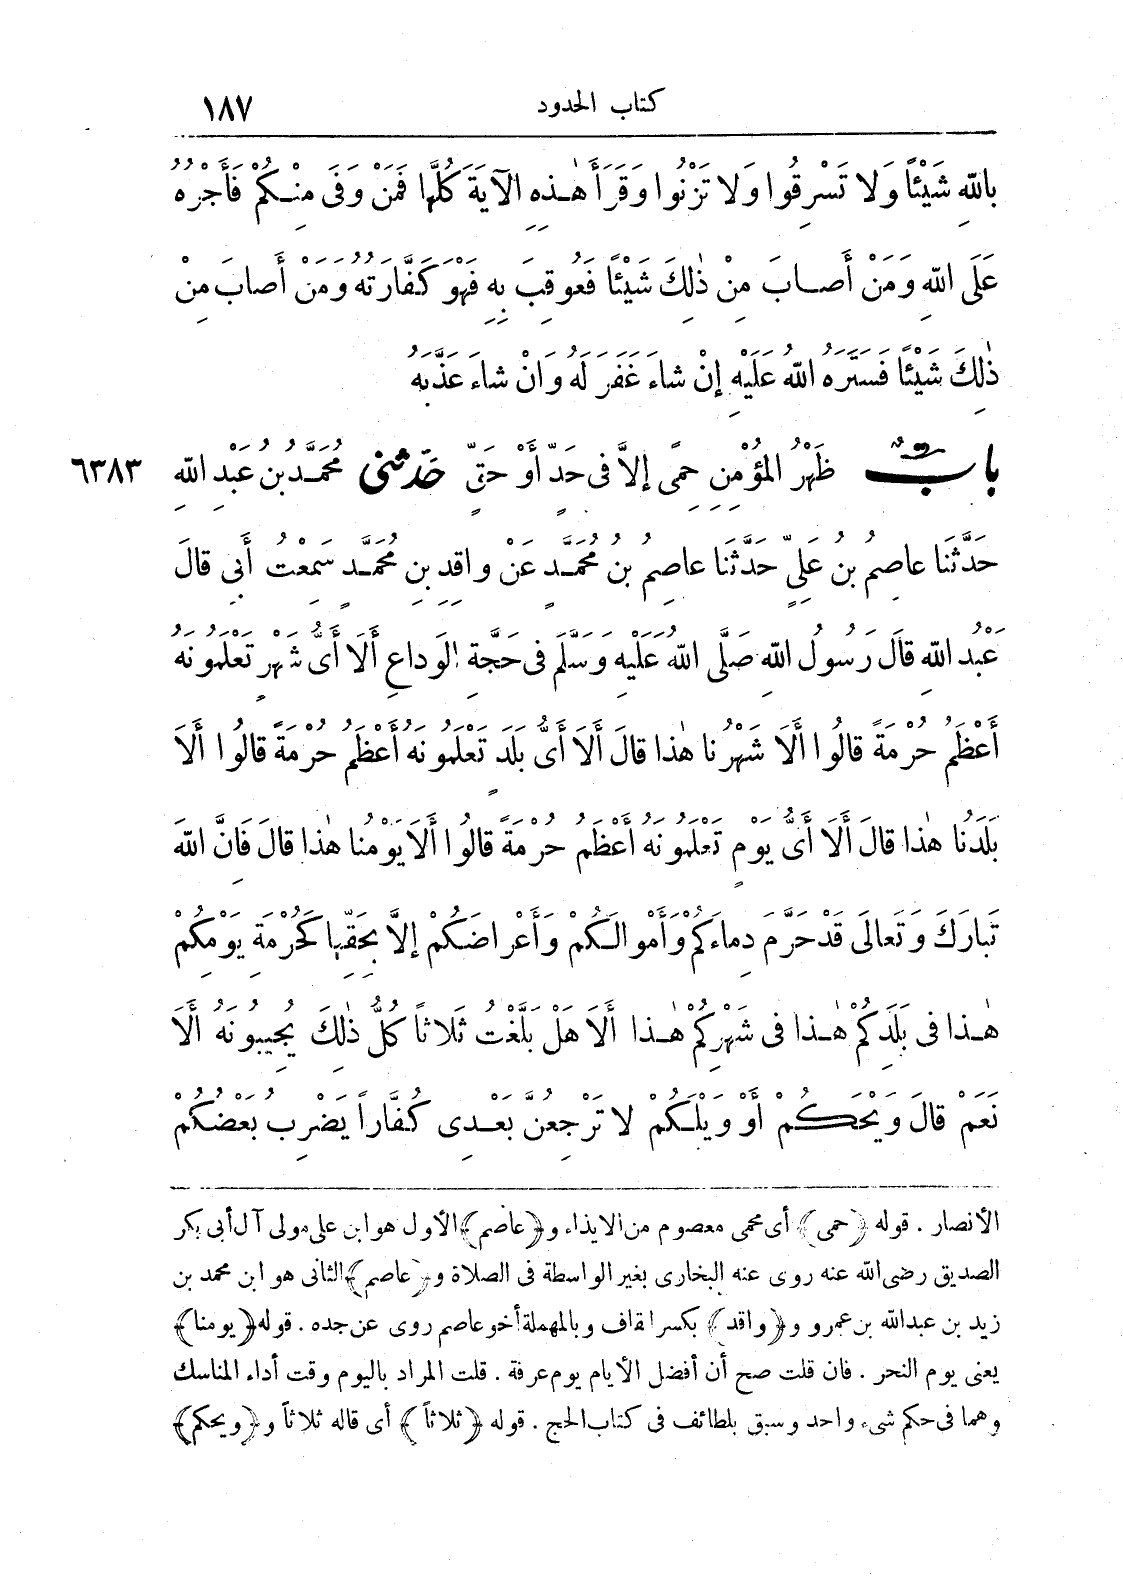 كتاب الحدود ١٨٧
بِاللهِ شَيْئاً وَلا تَسْرِقُوا وَلا تَزْنُوا وَقَرَأَ هٰذِهِ الآيَةَ كُلَّهَا فَمَنْ وَفَى مِنْكُمْ فَأَجْرُهُ
عَلَى اللهِ وَمَنْ أَصابَ مِنْ ذٰلِكَ شَيْئًا فَعُوقِبَ بِهِ فَهُوَ كَفَّارَتُهُ وَمَنْ أَصابَ مِنْ
ذٰلِكَ شَيْئًا فَسَتَرَهُ اللهُ عَلَيْهِ إِنْ شاءَ غَفَرَ لَهُ وَانْ شاءَ عَذَّبَهُ
بابٌ ظَهْرُ المُؤْمِنِ حِمًى إلاَّ فى حَدٍّ أَوْ حَقٍّ حَدَّثَنى مُحَمَّدُ بْنُ عَبْدِ اللهِ ٦٣٨٣
حَدَّثَنَا عاصِمُ بنُ عَلِيٍّ حَدَّثَنَا عاصِمُ بنُ مُحَمَّدٍ عَنْ واقِدِ بنِ مُحَمَّدٍ سَمِعْتُ أَبِى قالَ
عَبْدُ اللهِ قالَ رَسُولُ اللهِ صَلَّى اللهُ عَلَيْهِ وَسَلَّمَ فى حَجَّةِ الوَداعِ أَلَا أَىُّ شَهْرٍ تَعْلَمُونَهُ
أَعْظَمُ حُرْمَةً قالُوا أَلَا شَهْرُنا هٰذا قالَ أَلَا أَىُّ بَلَدٍ تَعْلَمُونَهُ أَعْظَمُ حُرْمَةً قالُوا أَلَا
بَلَدُنا هٰذا قالَ أَلَا أَىُّ يَوْمٍ تَعْلَمُونَهُ أَعْظَمُ حُرْمَةً قالُوا أَلَا يَوْمُنا هٰذا قالَ فَانَّ اللهَ
تَبارَكَ وَتَعالَى قَدْ حَرَّمَ دِماءَكُمْ وَأَمْوالَكُمْ وَأَعْراضَكُمْ إلاَّ بِحَقِّها كَحُرْمَةِ يَوْمِكُمْ
هٰذا فى بَلَدِكُمْ هٰذا فى شَهْرِكُمْ هٰذا أَلَا هَلْ بَلَّغْتُ ثَلاثاً كُلُّ ذٰلِكَ يُجِيبُونَهُ أَلَا
نَعَمْ قالَ وَيْحَكُمْ أَوْ وَيْلَكُمْ لا تَرْجِعُنَّ بَعْدِى كُفَّاراً يَضْرِبُ بَعْضُكُمْ
الأنصار . قوله ﴿حمى﴾ أى محمى معصوم من الايذاء و﴿عاصم﴾ الأول هو ابن على مولى آل أبى بكر
الصديق رضى الله عنه روى عنه البخارى بغير الواسطة فى الصلاة و﴿عاصم﴾ الثانى هو ابن محمد بن
زيد بن عبدالله بن عمرو و﴿واقد﴾ بكسر القاف وبالمهملة أخو عاصم روى عن جده . قوله ﴿يومنا﴾
يعنى يوم النحر . فان قلت صح أن أفضل الأيام يوم عرفة . قلت المراد باليوم وقت أداء المناسك
وهما فى حكم شىء واحد وسبق بلطائف فى كتاب الحج . قوله ﴿ثلاثاً﴾ أى قاله ثلاثاً و﴿ويحكم﴾